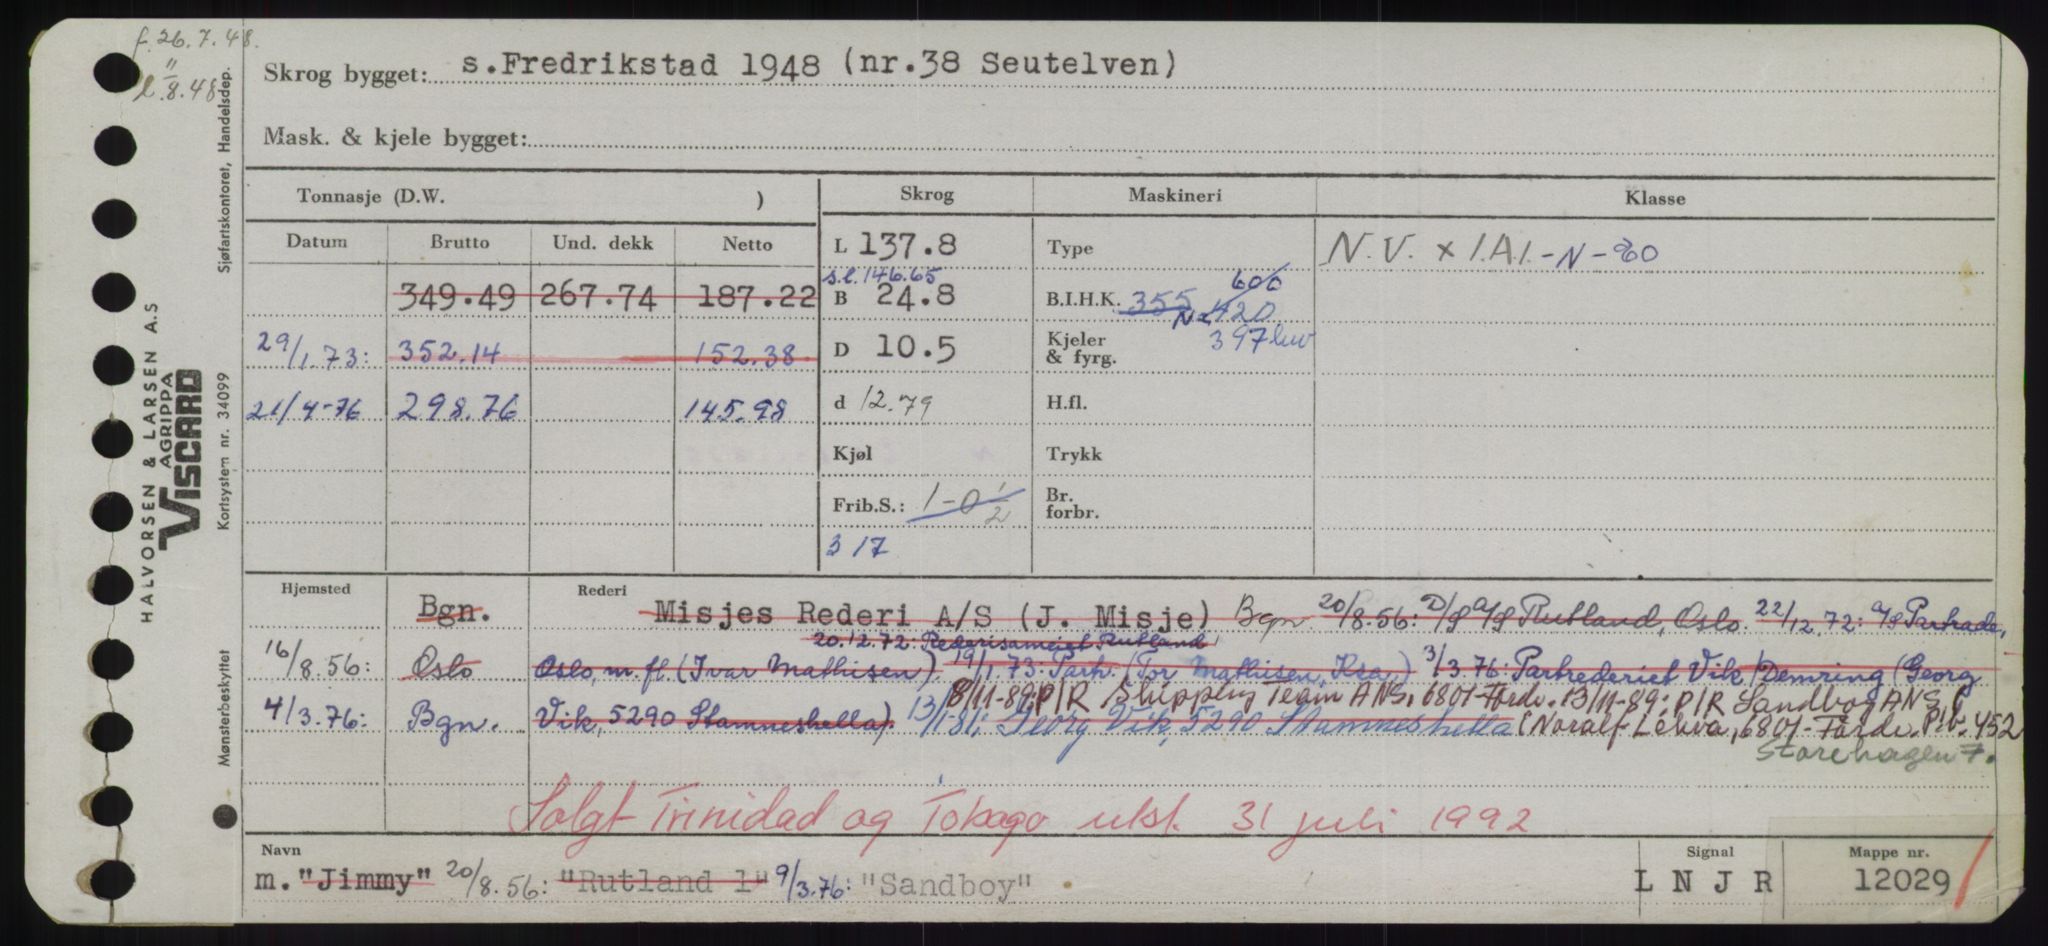 f. 26.7.48.
l. " 8.48
Skrog bygget: s.Fredrikstad 1948 (nr.38 Seutelven)
Mask. & kjele bygget:
Tonnasje (D.W. ) Skrog Maskineri Klasse
Datum Brutto Und. dekk Netto L 137.8 Type N.V. x 1.A1.-N-80
s.l. 146.65
349.49 267.74 187.22 B 24.8 B.I.H.K. 355 606
420
29/1.73: 352.14 152.38 D 10.5 Kjeler & fyrg. 397
21/4-76 298.76 145.98 d 12.79 H.fl.
Kjøl Trykk
Frib.S.: 1-0 1/2 Br. forbr.
317
Hjemsted Rederi
Bgn. Misjes Rederi A/S (J. Misje) Bgn 20/8.56: D/S A/S Rutland, Oslo. 22/12.72: A/S Partrade,
20.12.72: Rederisameiet Rutland
16/8.56: Oslo Oslo, m.fl (Ivar Mathisen). 19/1.73: Partr. (Tor Mathisen, Ksa.) 3/3.76: Partrederiet Vik/Demring (Georg
8/11-89: P/R Shipping Team ANS, 6801-Førde. 13/11-89: P/R Sandboy ANS,
4/3.76: Bgn. Vik, 5290 Stamneshella). 13/1-81: Georg Vik, 5290 Stamneshella (Noralf Lehva, 6801-Førde. P.b. 452
Storehagen 7.
Solgt Trinidad og Tobago utsl. 31 juli 1992
Navn Signal Mappe nr.
m. "Jimmy" 20/8.56: "Rutland 1" 9/3.76: "Sandboy" L N J R 12029
HALVORSEN & LARSEN A.S
AGRIPPA
VISCARD
Kortsystem nr. 34099
Sjøfartskontoret, Handelsdep.
Mønsterbeskyttet